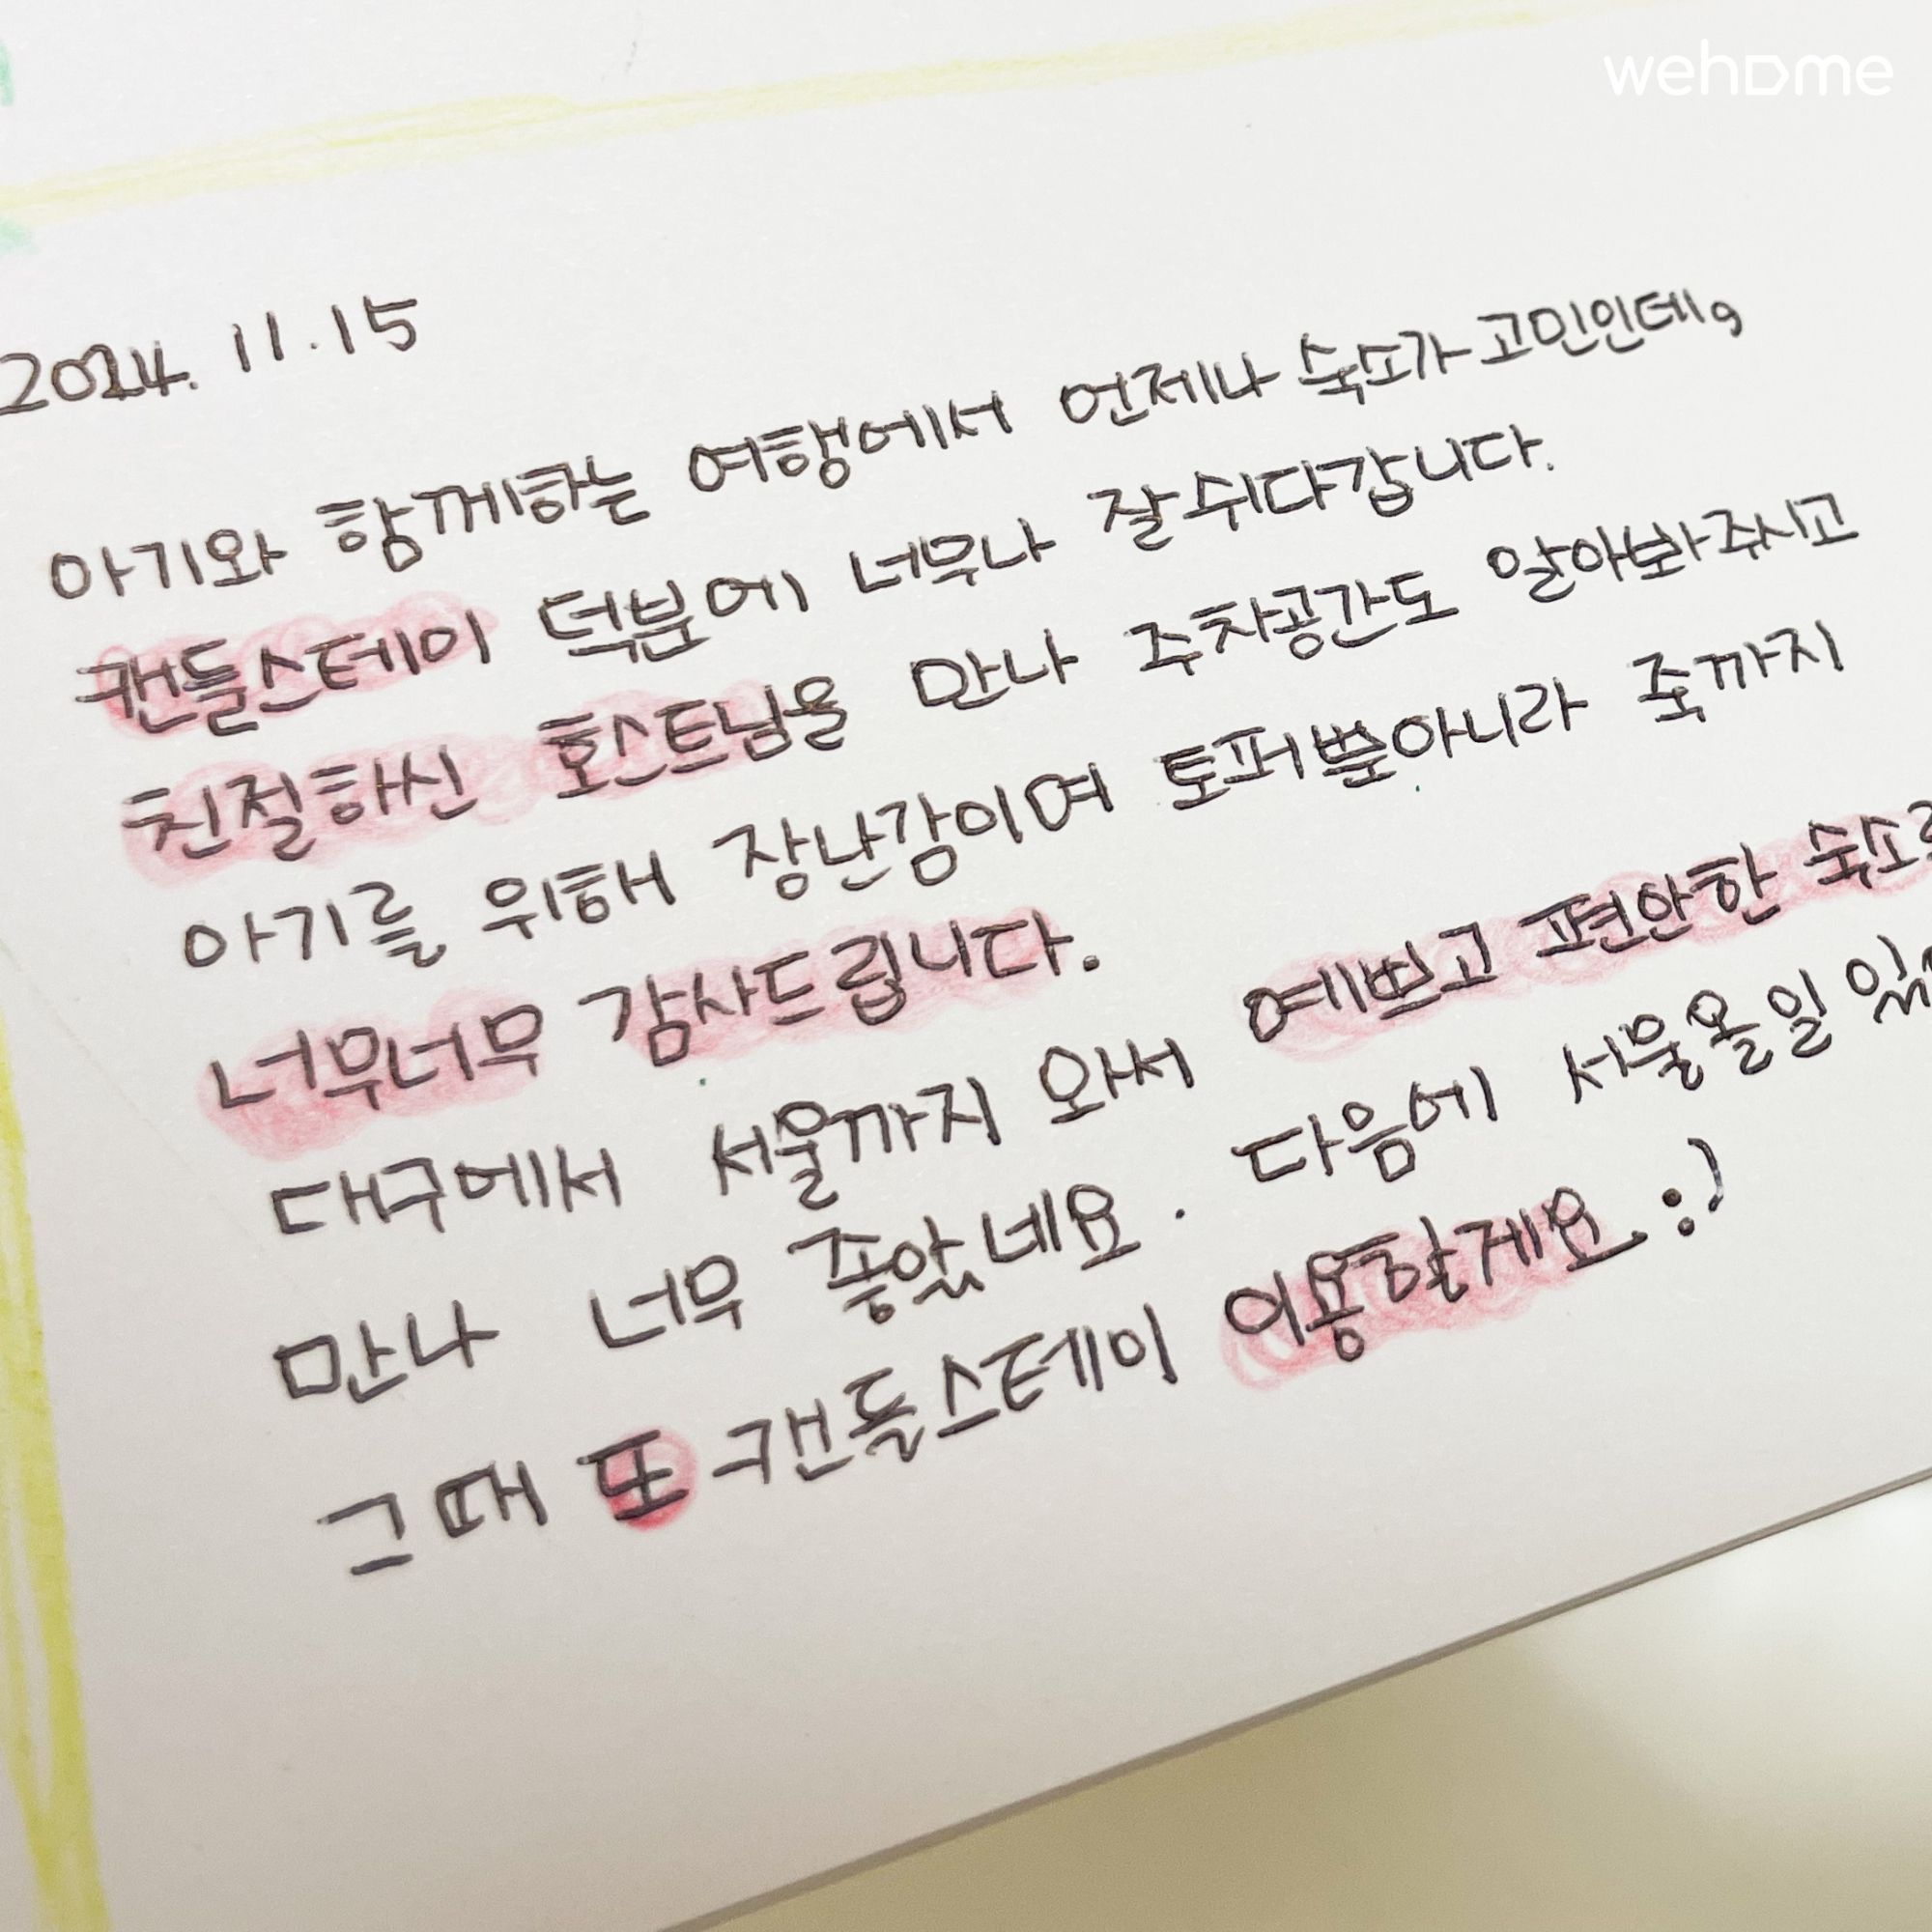 wehome
2024. 11.15
아기와 함께하는 여행에서 언제나 숙소가 고민인데,
캔들스테이 덕분에 너무나 잘 쉬다갑니다.
친절하신 호스트님을 만나 주차공간도 알아봐주시고
아기를 위해 장난감이며 토퍼뿐아니라 죽까지
너무너무 감사드립니다.
대구에서 서울까지 와서 예쁘고 편안한
만나 너무 좋았네요. 다음에 서울올일
그때 또 캔들스테이 이용할게요. :)